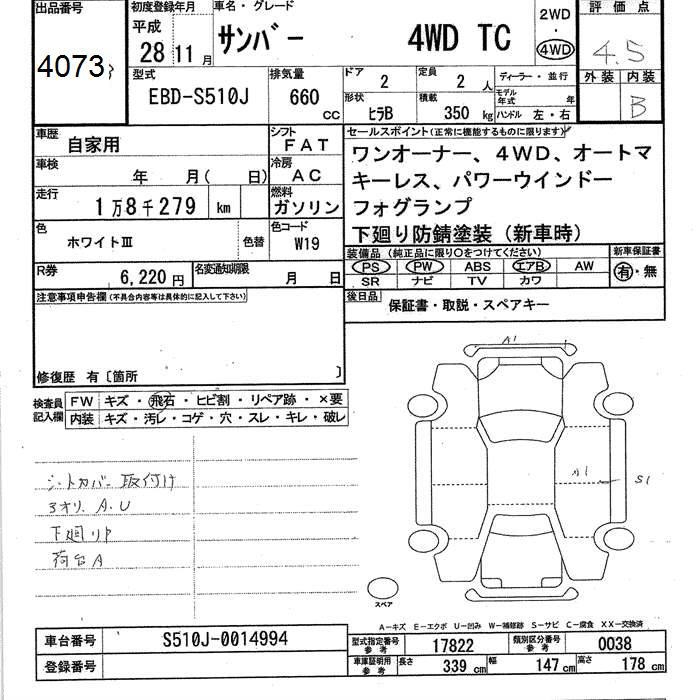 出品番号
4073
初度登録年月
平成
28年11月
車名・グレード
サンバー 4WD TC
2WD
・
4WD
評価点
4.5
外装 内装
B
型式
EBD-S510J
排気量
660 CC
ドア
2
定員
2 人
形状
ﾋﾗB
積載
350 kg
ディーラー・並行
モデル年式 年
ハンドル 左・右
車歴
自家用
シフト
FAT
車検
年 月( 日)
冷房
AC
走行
1万8千279 km
燃料
ガソリン
色
ホワイトⅢ
色替
色コード
W19
R券
6,220円
名変通知期限
月 日
セールスポイント(正常に機能するものに限ります)
ワンオーナー、4WD、オートマ
キーレス、パワーウインドー
フォグランプ
下廻り防錆塗装(新車時)
装備品 (純正品に限り○をつけてください)
PS PW ABS エアB AW
SR ナビ TV カワ
新車保証書
有・無
後日品
保証書・取説・スペアキー
注意事項申告欄(不具合内容等は具体的に記入して下さい)
修復歴 有〔箇所 〕
検査員記入欄
FW キズ・飛石・ヒビ割・リペア跡・×要
内装 キズ・汚レ・コゲ・穴・スレ・キレ・破レ
シートカバー取付け
3オリ、A.U
下廻りP
荷台A
A1
A1
S1
スペア
A-キズ E-エクボ U-凹み W-補修跡 S-サビ C-腐食 XX-交換済
車台番号
S510J-0014994
登録番号
型式指定番号 参考
17822
類別区分番号 参考
0038
車庫証明用 参考
長さ 339 cm 幅 147 cm 高さ 178 cm